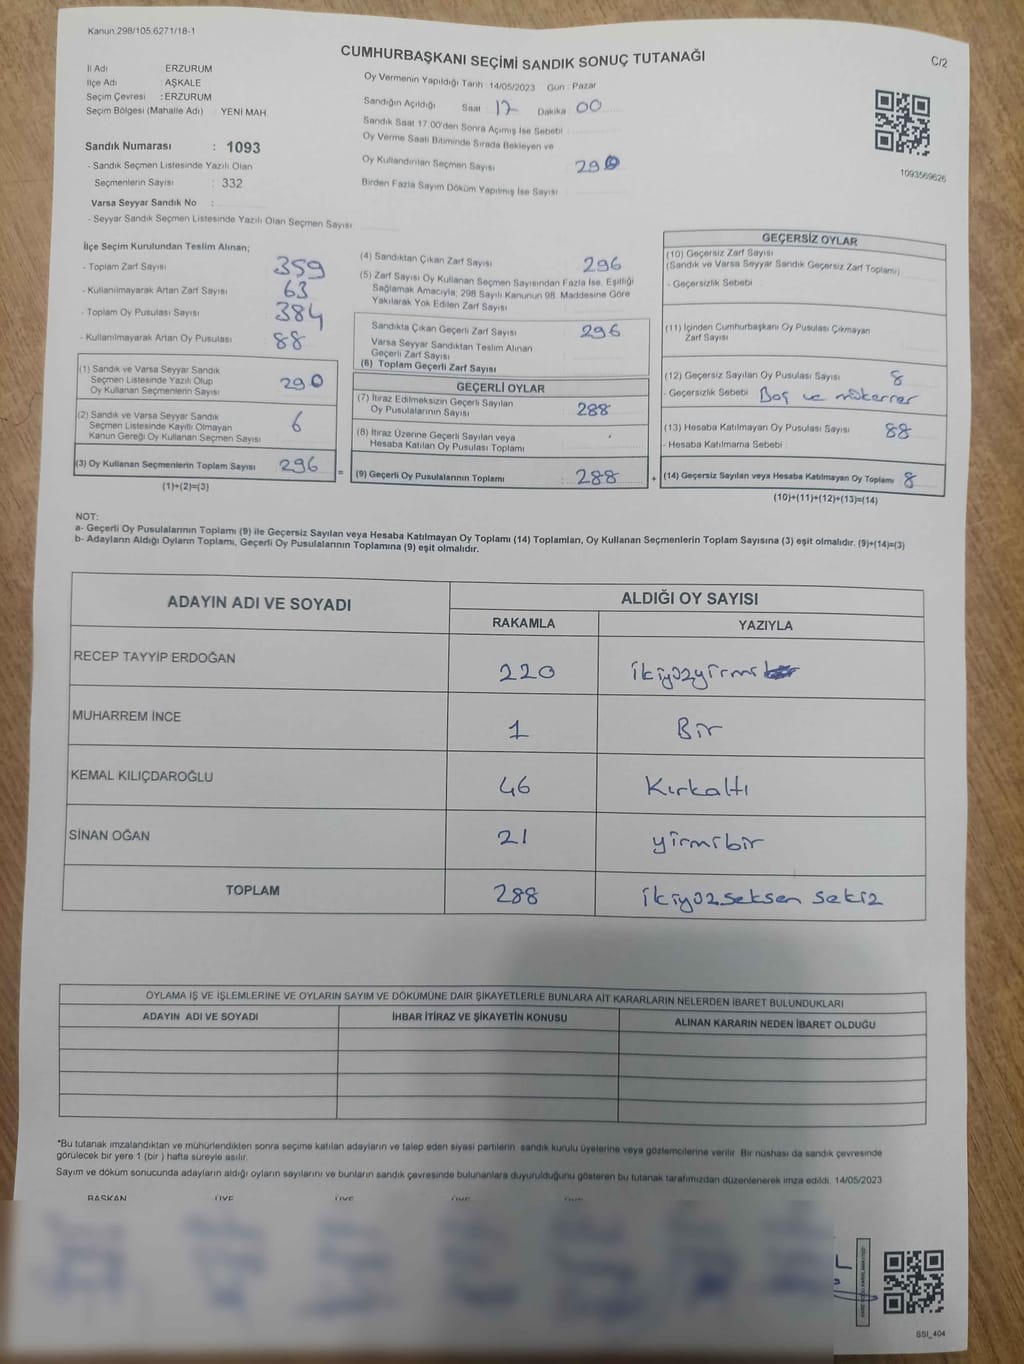 Kanun.298/105.6271/18-1
CUMHURBAŞKANI SEÇİMİ SANDIK SONUÇ TUTANAĞI
C/2
İl Adı ERZURUM
İlçe Adı AŞKALE
Seçim Çevresi : ERZURUM
Seçim Bölgesi (Mahalle Adı) YENİ MAH
Sandık Numarası : 1093
- Sandık Seçmen Listesinde Yazılı Olan
Seçmenlerin Sayısı : 332
Varsa Seyyar Sandık No :
- Seyyar Sandık Seçmen Listesinde Yazılı Olan Seçmen Sayısı
Oy Vermenin Yapıldığı Tarih :14/05/2023 Gün : Pazar
Sandığın Açıldığı Saat : 17 Dakika : 00
Sandık Saat 17.00'den Sonra Açmış İse Sebebi
Oy Verme Saati Bitiminde Sırada Bekleyen ve
Oy Kullandırılan Seçmen Sayısı 290
Birden Fazla Sayım Döküm Yapılmış İse Sayısı
1093569626
İlçe Seçim Kurulundan Teslim Alınan;
- Toplam Zarf Sayısı 359
- Kullanılmayarak Artan Zarf Sayısı 63
- Toplam Oy Pusulası Sayısı 384
- Kullanılmayarak Artan Oy Pusulası 88
(1) Sandık ve Varsa Seyyar Sandık
Seçmen Listesinde Yazılı Olup
Oy Kullanan Seçmenlerin Sayısı 290
(2) Sandık ve Varsa Seyyar Sandık
Seçmen Listesinde Kayıtlı Olmayan
Kanun Gereği Oy Kullanan Seçmen Sayısı 6
(3) Oy Kullanan Seçmenlerin Toplam Sayısı 296 =
(1)+(2)=(3)
(4) Sandıktan Çıkan Zarf Sayısı 296
(5) Zarf Sayısı Oy Kullanan Seçmen Sayısından Fazla İse, Eşitliği
Sağlamak Amacıyla; 298 Sayılı Kanunun 98. Maddesine Göre
Yakılarak Yok Edilen Zarf Sayısı
Sandıkta Çıkan Geçerli Zarf Sayısı 296
Varsa Seyyar Sandıktan Teslim Alınan
Geçerli Zarf Sayısı
(6) Toplam Geçerli Zarf Sayısı
GEÇERLİ OYLAR
(7) İtiraz Edilmeksizin Geçerli Sayılan
Oy Pusulalarının Sayısı 288
(8) İtiraz Üzerine Geçerli Sayılan veya
Hesaba Katılan Oy Pusulası Toplamı
(9) Geçerli Oy Pusulalarının Toplamı 288 +
GEÇERSİZ OYLAR
(10) Geçersiz Zarf Sayısı
(Sandık ve Varsa Seyyar Sandık Geçersiz Zarf Toplamı)
- Geçersizlik Sebebi
(11) İçinden Cumhurbaşkanı Oy Pusulası Çıkmayan
Zarf Sayısı
(12) Geçersiz Sayılan Oy Pusulası Sayısı 8
- Geçersizlik Sebebi Boş ve mükerrer
(13) Hesaba Katılmayan Oy Pusulası Sayısı 88
- Hesaba Katılmama Sebebi
(14) Geçersiz Sayılan veya Hesaba Katılmayan Oy Toplamı 8
(10)+(11)+(12)+(13)=(14)
NOT:
a- Geçerli Oy Pusulalarının Toplamı (9) ile Geçersiz Sayılan veya Hesaba Katılmayan Oy Toplamı (14) Toplamları, Oy Kullanan Seçmenlerin Toplam Sayısına (3) eşit olmalıdır. (9)+(14)=(3)
b- Adayların Aldığı Oyların Toplamı, Geçerli Oy Pusulalarının Toplamına (9) eşit olmalıdır.
ADAYIN ADI VE SOYADI
ALDIĞI OY SAYISI
RAKAMLA YAZIYLA
RECEP TAYYİP ERDOĞAN 220 ikiyüzyirmi
MUHARREM İNCE 1 Bir
KEMAL KILIÇDAROĞLU 46 Kırkaltı
SİNAN OĞAN 21 yirmibir
TOPLAM 288 ikiyüzseksen sekiz
OYLAMA İŞ VE İŞLEMLERİNE VE OYLARIN SAYIM VE DÖKÜMÜNE DAİR ŞİKAYETLERLE BUNLARA AİT KARARLARIN NELERDEN İBARET BULUNDUKLARI
ADAYIN ADI VE SOYADI İHBAR İTİRAZ VE ŞİKAYETİN KONUSU ALINAN KARARIN NEDEN İBARET OLDUĞU
*Bu tutanak imzalandıktan ve mühürlendikten sonra seçime katılan adayların ve talep eden siyasi partilerin sandık kurulu üyelerine veya gözlemcilerine verilir. Bir nüshası da sandık çevresinde
görülecek bir yere 1 (bir) hafta süreyle asılır.
Sayım ve döküm sonucunda adayların aldığı oyların sayılarını ve bunların sandık çevresinde bulunanlara duyurulduğunu gösteren bu tutanak tarafımızdan düzenlenerek imza edildi. 14/05/2023
BAŞKAN ÜYE ÜYE ÜYE
SSI_404